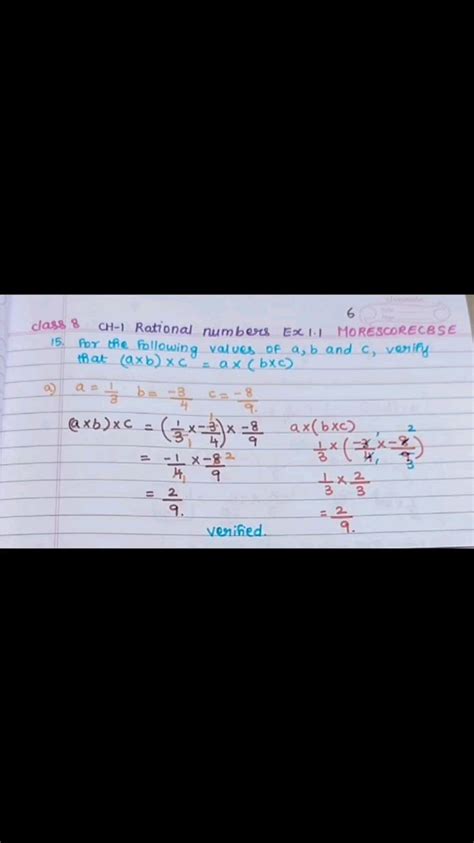 6
class 8 CH-1 Rational numbers Ex 1.1 MORESCORECBSE
15. For the following values of a, b and c, verify
that (a×b) × c = a × (b×c)
a) a = 1/3 b = -3/4 c = -8/9.
(a×b)×c = (1/3 × -3/4) × -8/9 a×(b×c)
= -1/4 × -8/9 1/3 × (-3/4 × -8/9)
= 2/9. 1/3 × 2/3
= 2/9.
verified.